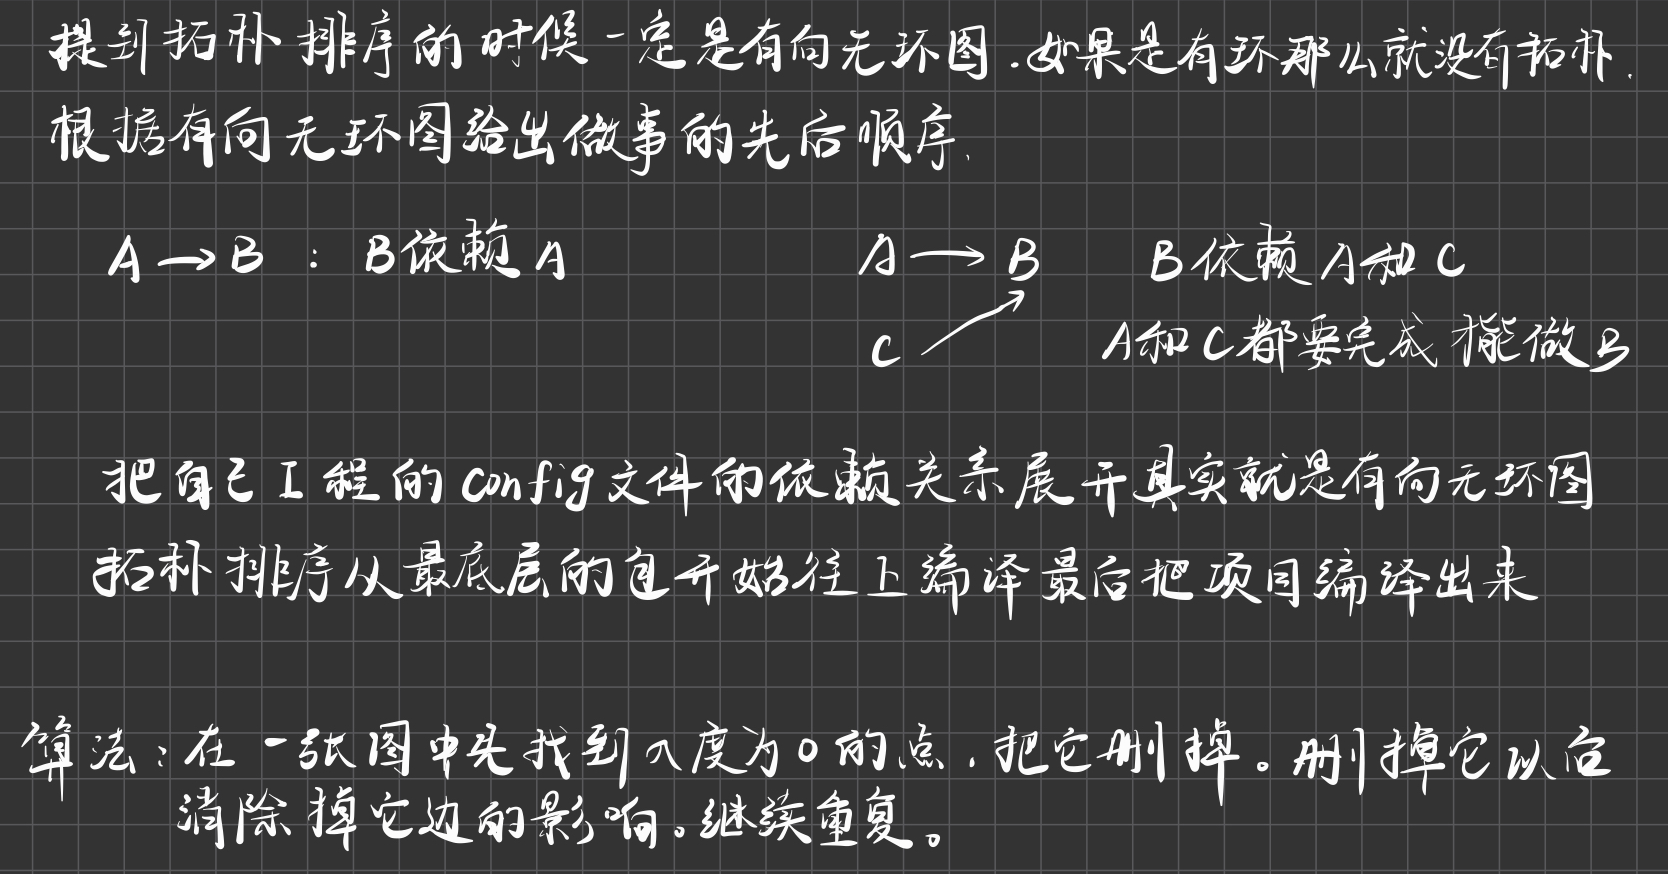 提到拓扑排序的时候一定是有向无环图.如果是有环那么就没有拓扑.
根据有向无环图给出做事的先后顺序.
A→B : B依赖A
A→B B依赖A和C
C A和C都要完成才能做B
把自己工程的config文件的依赖关系展开其实就是有向无环图
拓扑排序从最底层的包开始往上编译最后把项目编译出来
算法:在一张图中先找到入度为0的点,把它删掉。删掉它以后
消除掉它边的影响。继续重复。